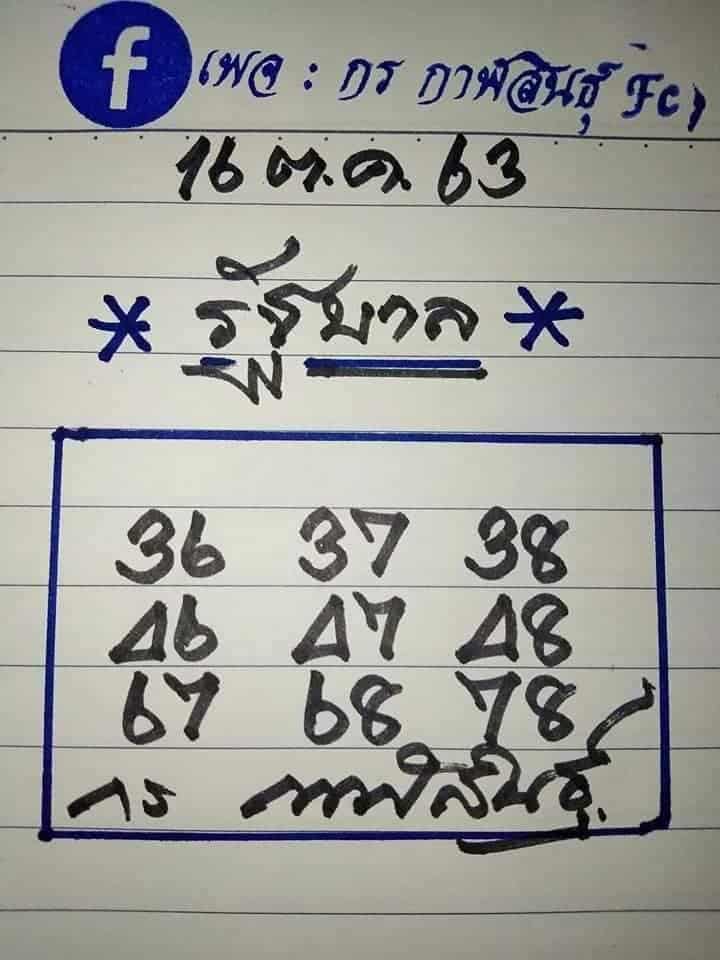 f เพจ : กร กาฬสินธุ์ Fc,
16 ต.ค. 63
* รัฐบาล *
36 37 38
46 47 48
67 68 78
กร กาฬสินธุ์